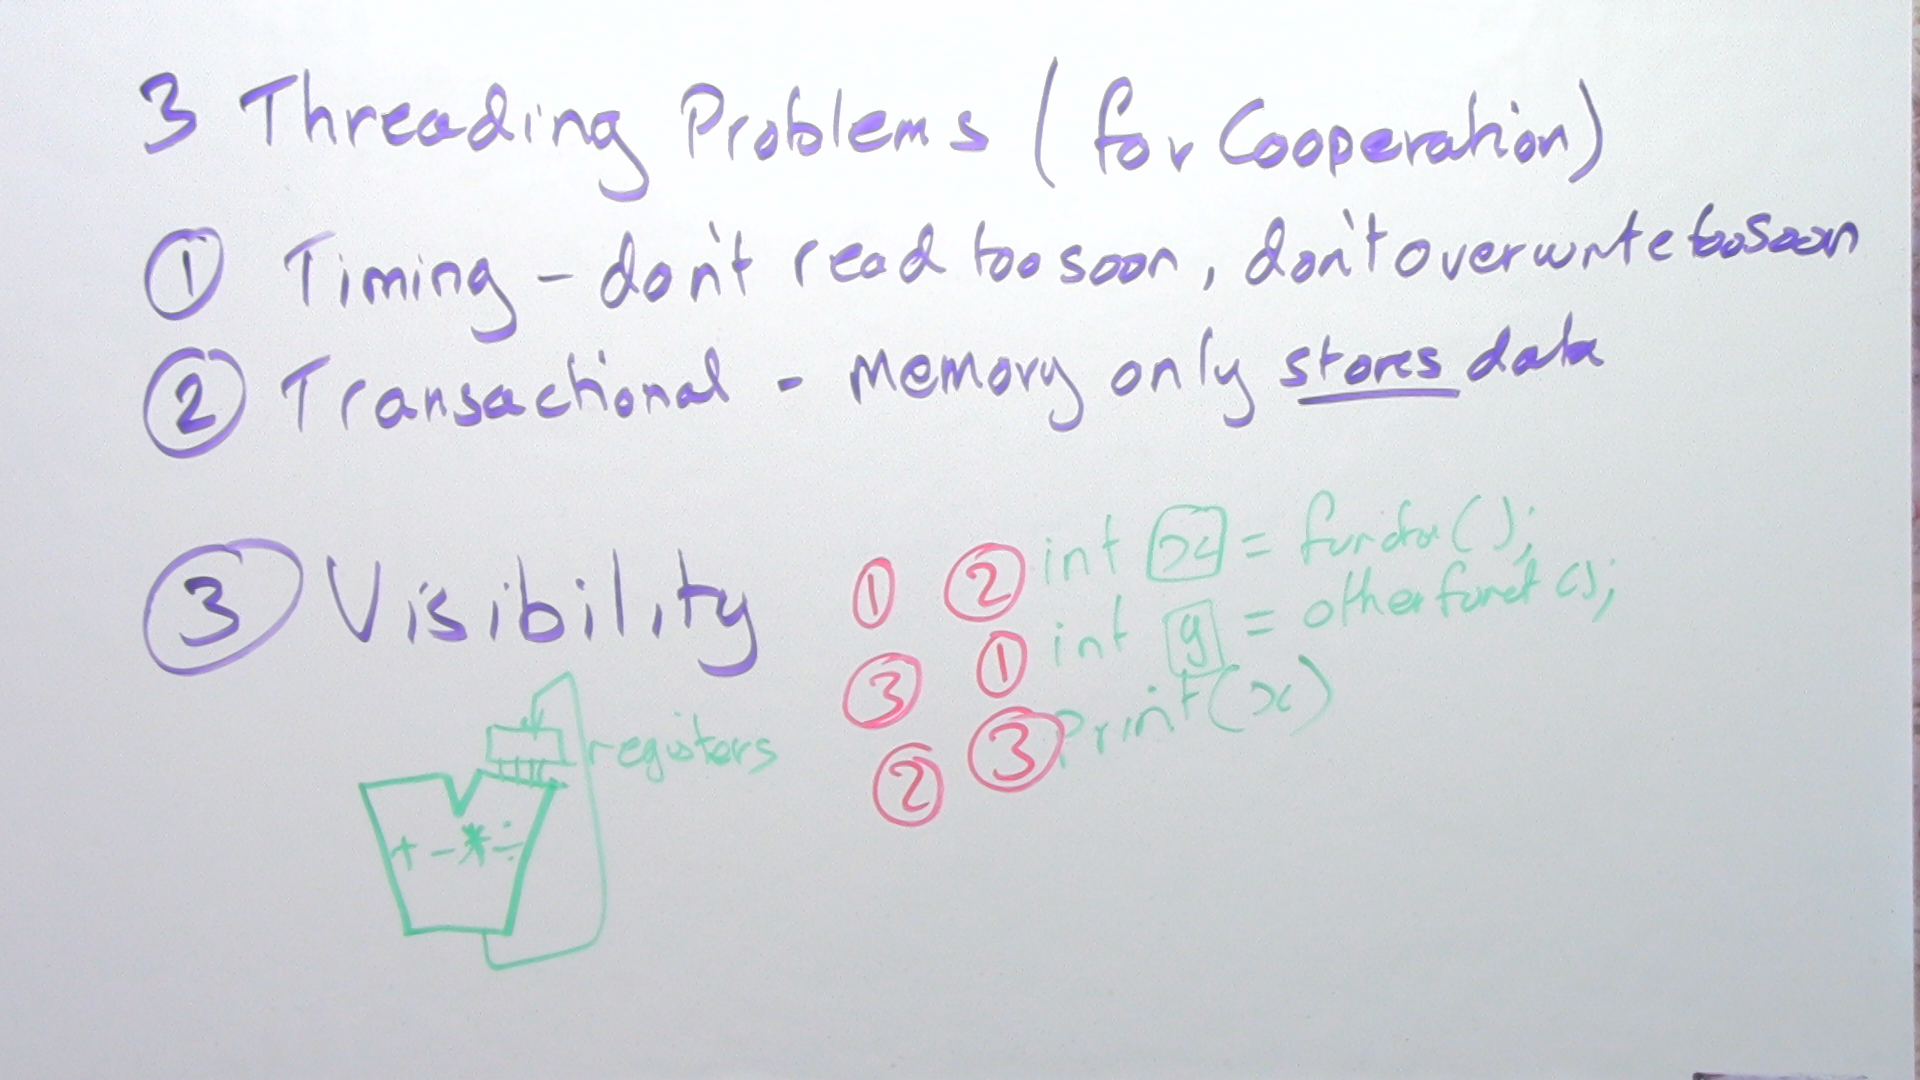 3 Threading Problems (for Cooperation)
① Timing - don't read too soon, don't overwrite too soon
② Transactional - memory only stores data
③ Visibility
① ② int x = functn();
③ ① int y = otherfunct();
② ③ Print(x)
registers
+ - * ÷